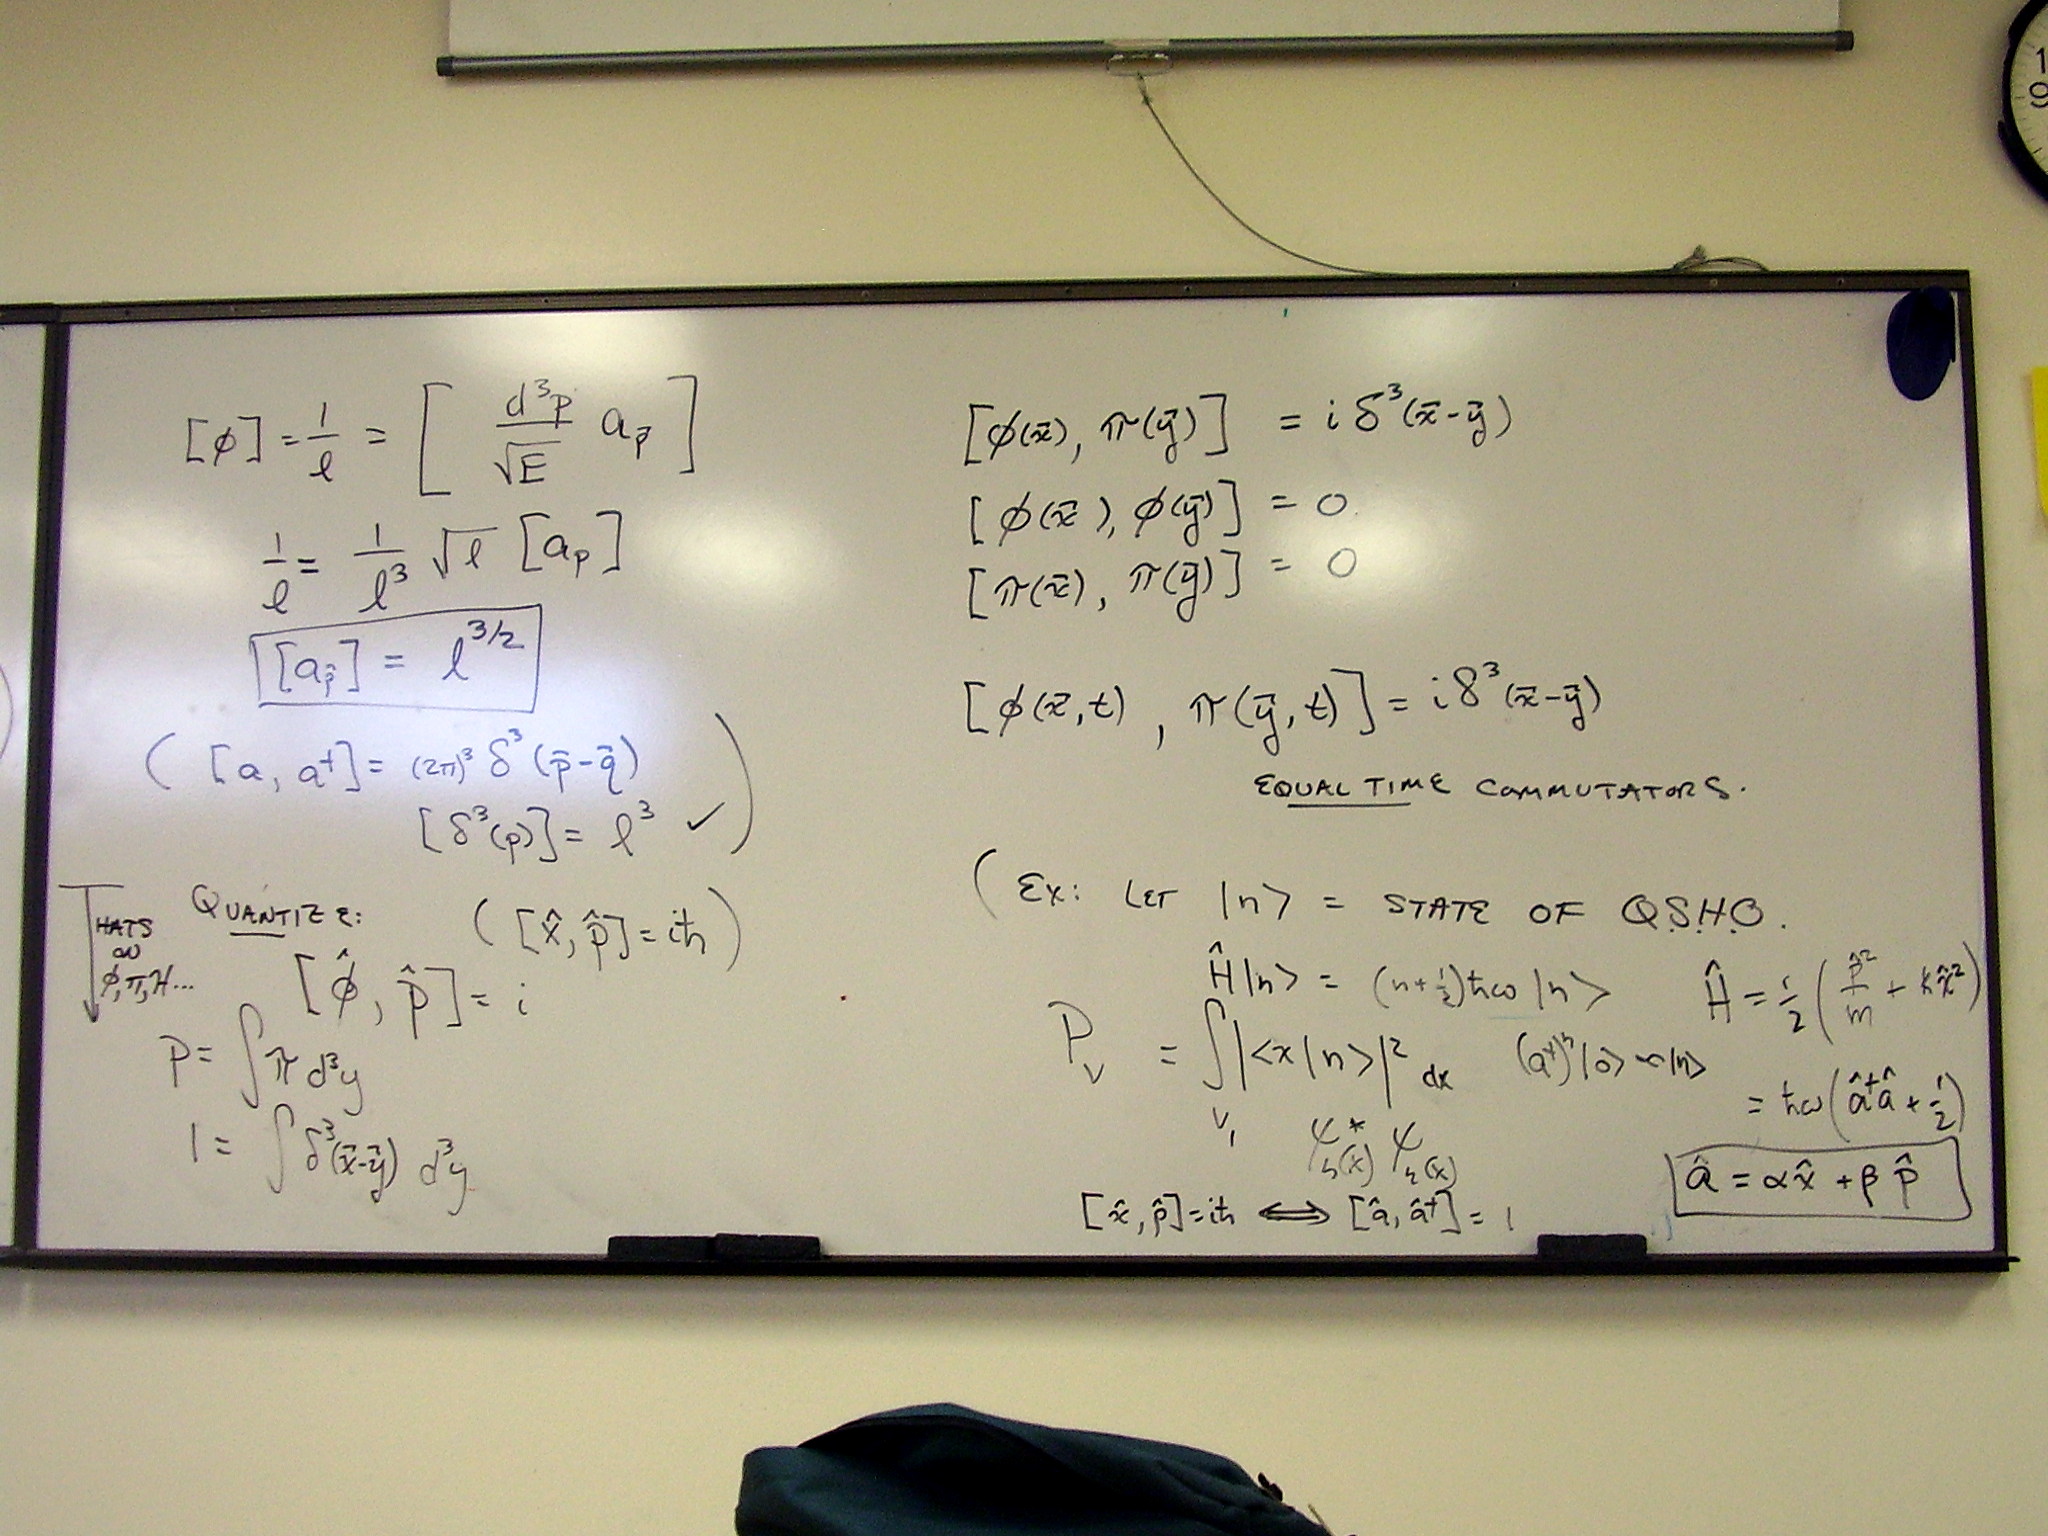 [φ] = 1/ℓ = [ d³p/√E a_p⃗ ]
1/ℓ = 1/ℓ³ √ℓ [a_p]
[a_p⃗] = ℓ^3/2
( [a, a†] = (2π)³ δ³(p⃗-q⃗)
[δ³(p)] = ℓ³ ✓ )
HATS
∞
φ, π, H...
QUANTIZE: ( [x̂, p̂] = iħ )
[φ̂, p̂] = i
P = ∫ π d³y
1 = ∫ δ³(x⃗-y⃗) d³y
[φ(x⃗), π(y⃗)] = i δ³(x⃗-y⃗)
[φ(x⃗), φ(y⃗)] = 0
[π(x⃗), π(y⃗)] = 0
[φ(x⃗,t), π(y⃗,t)] = i δ³(x⃗-y⃗)
EQUAL TIME COMMUTATORS.
( EX: LET |n> = STATE OF Q.S.H.O.
Ĥ|n> = (n+½)ħω |n> Ĥ = ½ ( p̂²/m + k x̂² )
P_V = ∫_V, |<x|n>|² dx (a†)ⁿ|0> ~ |n>
= ħω ( â†â + ½ )
ψ*_n(x) ψ_n(x)
â = αx̂ + β p̂
[x̂, p̂] = iħ ⟺ [â, â†] = 1
1
9